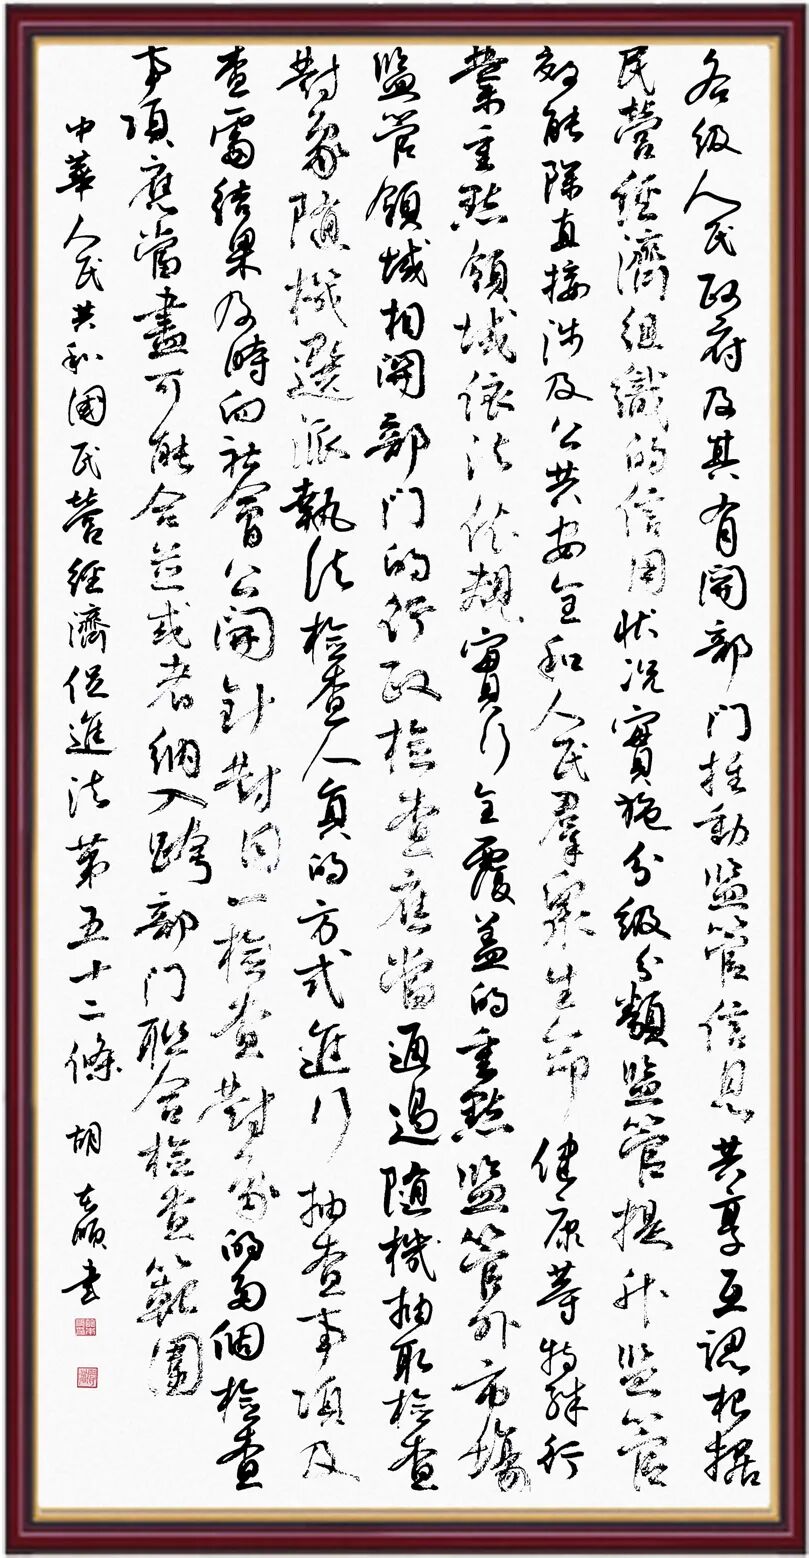 各級人民政府及其有關部門推動監管信息共享互認根据
民營經濟組織的信用狀況實施分級分類監管提升監管
效能除直接涉及公共安全和人民羣衆生命健康等特殊行
業重點領域依法依規實行全覆盖的重點監管外市場
監管領域相關部门的行政檢查應當通過随機抽取檢查
對象随機選派執法檢查人員的方式進行抽查事項及
查處結果及時向社會公開針對同一檢查對象的多個檢查
事項應當盡可能合並或者納入跨部门联合檢查範圍
中華人民共和國民營經濟促進法第五十二條 胡 書